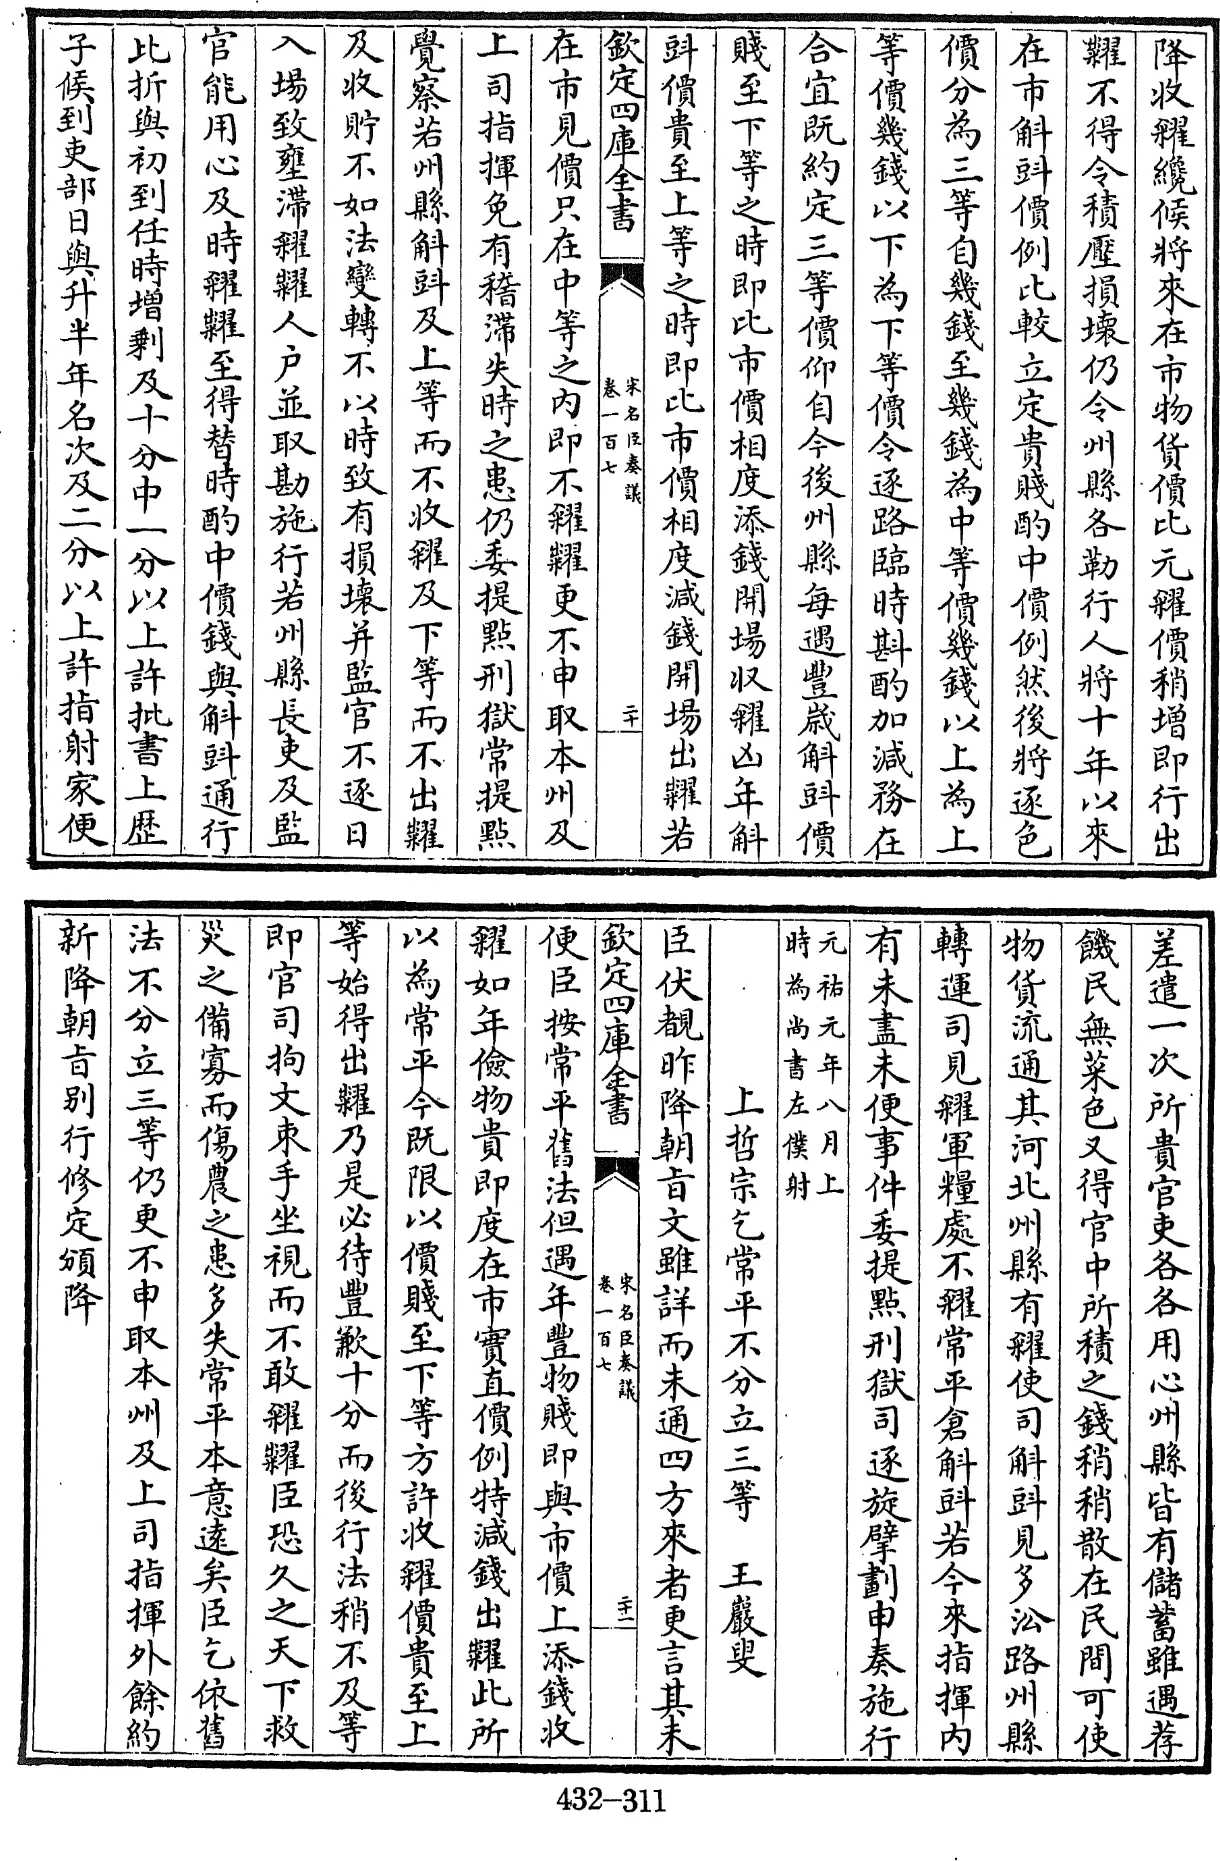 降收糴纔候將來在市物貨價比元糴價稍增即行出
糶不得令積壓損壞仍令州縣各勒行人將十年以來
在市斛㪷價例比較立定貴賤酌中價例然後將逐色
價分為三等自幾錢至幾錢為中等價幾錢以上為上
等價幾錢以下為下等價令逐路臨時斟酌加減務在
合宜既約定三等價仰自今後州縣每遇豐歲斛㪷價
賤至下等之時即比市價相度添錢開場収糴凶年斛
㪷價貴至上等之時即比市價相度減錢開場出糶若
欽定四庫全書
宋名臣奏議
卷一百七
二十
在市見價只在中等之內即不糴糶更不申取本州及
上司指揮免有稽滯失時之患仍委提點刑獄常提點
覺察若州縣斛㪷及上等而不收糴及下等而不出糶
及收貯不如法變轉不以時致有損壞并監官不逐日
入場致壅滯糴糶人户並取勘施行若州縣長吏及監
官能用心及時糴糶至得替時酌中價錢與斛㪷通行
比折與初到任時增剩及十分中一分以上許批書上歷
子候到吏部日與升半年名次及二分以上許指射家便
差遣一次所貴官吏各各用心州縣皆有儲蓄雖遇荐
饑民無菜色又得官中所積之錢稍稍散在民間可使
物貨流通其河北州縣有糴使司斛㪷見多㳂路州縣
轉運司見糴軍糧處不糴常平倉斛㪷若今來指揮內
有未盡未便事件委提點刑獄司逐旋擘劃申奏施行
元祐元年八月上
時為尚書左僕射
上哲宗乞常平不分立三等　王巖叟
臣伏覩昨降朝旨文雖詳而未通四方來者更言其未
欽定四庫全書
宋名臣奏議
卷一百七
二十一
便臣按常平舊法但遇年豐物賤即與市價上添錢收
糴如年儉物貴即度在市實直價例特減錢出糶此所
以為常平今既限以價賤至下等方許收糴價貴至上
等始得出糶乃是必待豐歉十分而後行法稍不及等
即官司拘文束手坐視而不敢糴糶臣恐久之天下救
災之備寡而傷農之患多失常平本意遠矣臣乞依舊
法不分立三等仍更不申取本州及上司指揮外餘約
新降朝旨别行修定頒降
432-311